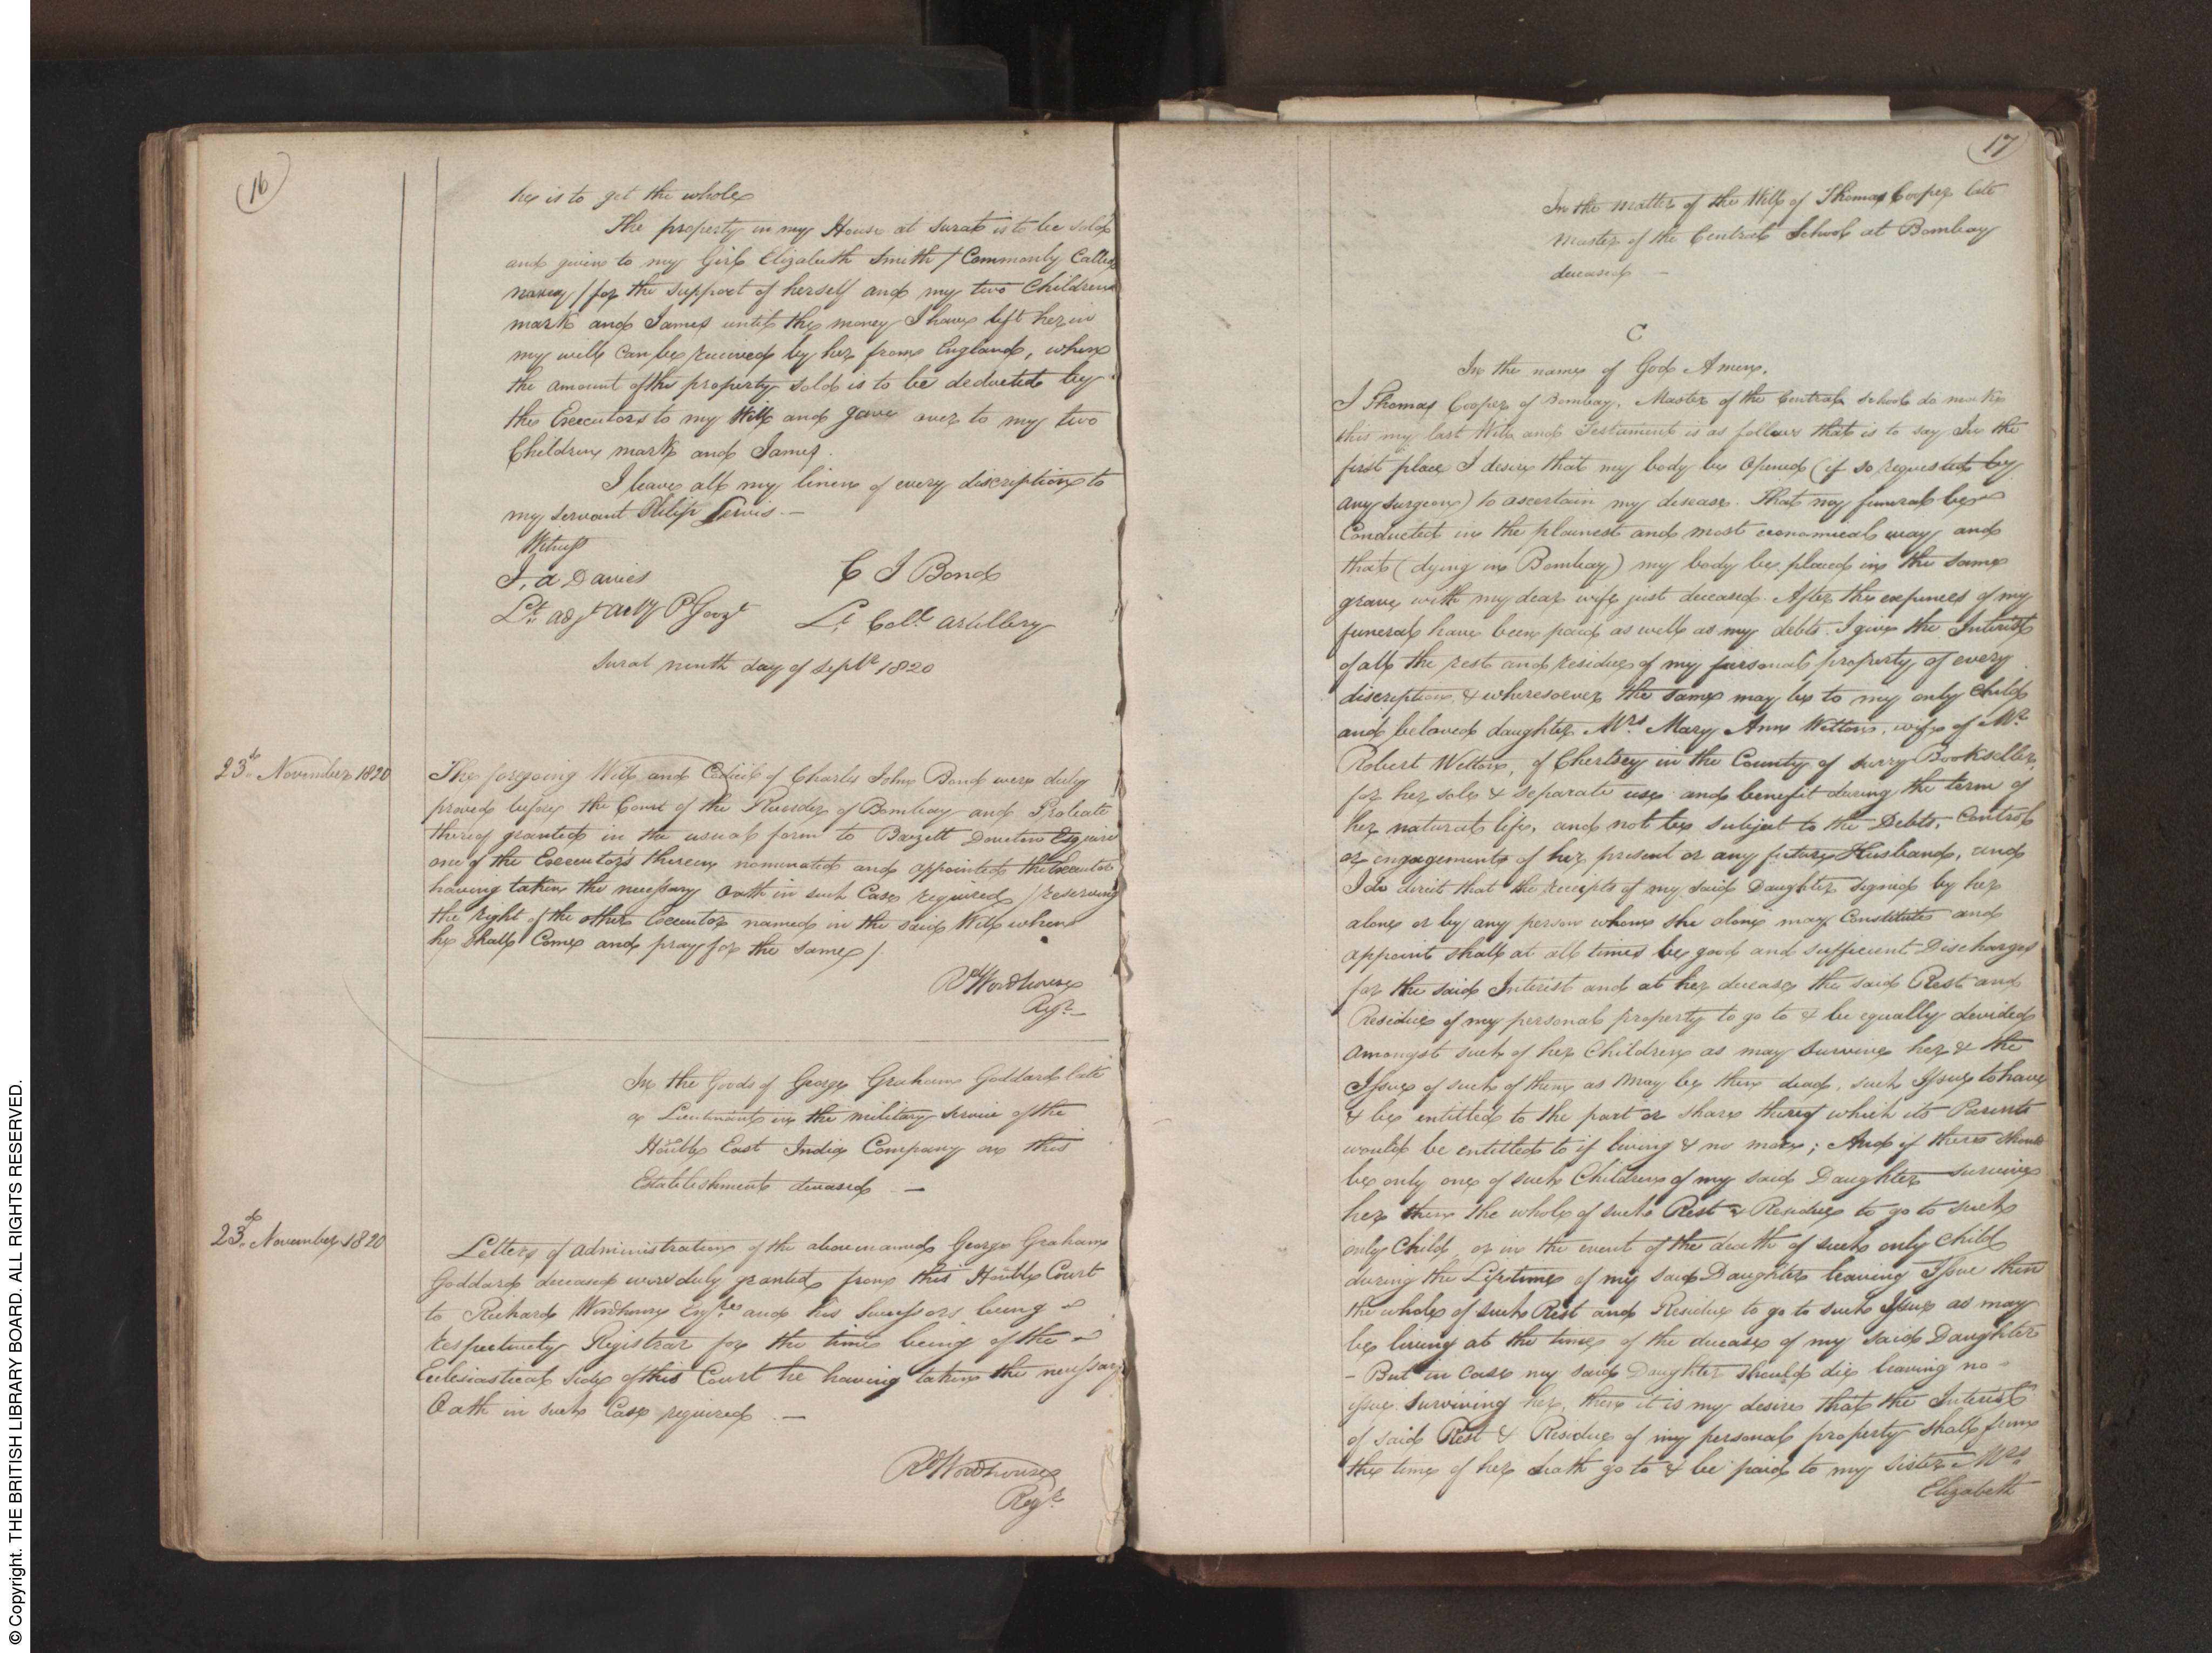 16
he is to get the whole
The property in my House at Surat is to be sold
and given to my Girl Elizabeth Smith / Commonly Called
/ for the support of herself and my two Children
mark and James until the money I have left her in
my will can be received by her from England, when
the amount of the property sold is to be deducted by
the Executors to my Will and gave over to my two
Children mark and James.
I leave all my linen of every discription to
my servant Philip -
Witness
J. A Davies
Lt. adjt arty
C J Bond
Lt. Coll. artillery
Surat ninth day of Septr 1820
23d. November 1820
The foregoing Will and Codicil of Charles John Bond were duly
proved before the Court of the Recorder of Bombay and Probate
thereof granted in the usual form to Esquire
one of the Executors therein nominated and appointed the Executor
having taken the necessary Oath in such Case required / reserving
the right of the other Executor named in the said Will when
he shall Come and pray for the same /.
Rd Woodhouse
Regr.
In the Goods of George Graham Goddard late
a Lieutenant in the military Service of the
Honble East India Company on this
Establishment deceased -
23d. November 1820
Letters of administration of the abovenamed George Graham
Goddard deceased were duly granted from this Honble Court
to Richard Woodhouse Esqre and his Successors being
respectively Registrar for the time being of the
Eclesiastical side of this Court he having taken the necessary
Oath in such Case required. -
Rd Woodhouse
Regr.
17
In the matter of the Will of Thomas Cooper late
Master of the Central School at Bombay
deceased -
C
In the name of God Amen.
I Thomas Cooper of Bombay, Master of the Central School do make
this my last Will and Testament is as follows that is to say In the
first place I desire that my body be opened (if so requested by
any surgeon) to ascertain my disease. That my funeral be
Conducted in the plainest and most economical way and
that (dying in Bombay) my body be placed in the same
grave with my dear wife just deceased. After the expences of my
funeral have been paid as well as my debts. I give the Interest
of all the rest and residue of my personal property of every
discription & wheresoever the same may be to my only child
and beloved daughter Mrs Mary Ann Wetton, wife of Mr.
Robert Wetton, of Chertsey in the County of Surry Bookseller,
for her sole & separate use and benefit during the term of
her natural life, and not be subject to the Debts, Control
or engagements of her present or any future Husband, and
I do direct that the receipts of my said Daughter signed by her
alone or by any person whom she alone may Constitute and
appoint shall at all times be good and sufficient Discharges
for the said Interest and at her decease the said Rest and
Residue of my personal property to go to & be equally devided
amongst such of her Children as may survive her & the
Issue of such of them as may be then dead, such Issue to have
& be entitled to the part or share thereof which its Parents
would be entitled to if living & no more; And if there should
be only one of such Children of my said Daughter survive
her then the whole of such Rest & Residue to go to such
only Child, or in the event of the death of such only Child
during the Lifetime of my said Daughter leaving Issue then
the whole of such Rest and Residue to go to such Issue as may
be living at the time of the decease of my said Daughter
- But in case my said Daughter should die leaving no
issue surviving her, then it is my desire that the Interest
of said Rest & Residue of my personal property shall from
the time of her death go to & be paid to my sister Mrs.
Elizabeth
© Copyright. THE BRITISH LIBRARY BOARD. ALL RIGHTS RESERVED.